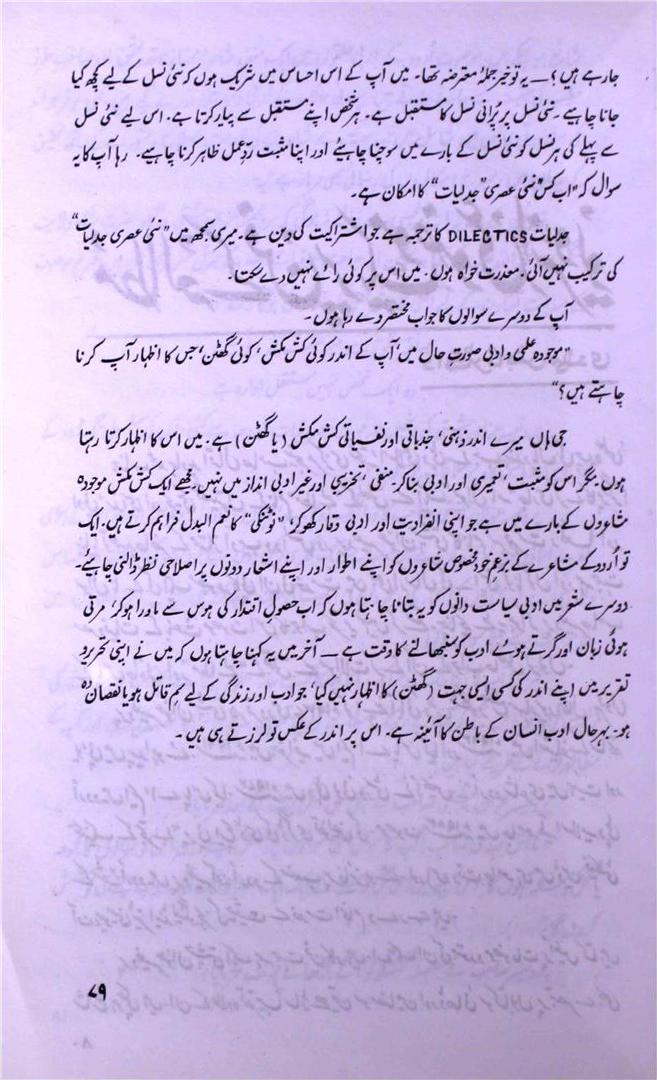 جارہے ہیں؟ — یہ تو خیر جملۂ معترضہ تھا۔ میں آپ کے اس احساس میں شریک ہوں کہ نئی نسل کے لیے کچھ کیا
جانا چاہیے۔ نئی نسل ہر پُرانی نسل کا مستقبل ہے۔ ہر شخص اپنے مستقبل سے پیار کرتا ہے۔ اس لیے نئی نسل
سے پہلے کی ہر نسل کو نئی نسل کے بارے میں سوچنا چاہیئے اور اپنا مثبت ردِّ عمل ظاہر کرنا چاہیے۔ رہا آپ کا یہ
سوال کہ "اب کس نئی عصری "جدلیات" کا امکان ہے۔
جدلیات DILECTICS کا ترجمہ ہے جو اشتراکیت کی دین ہے۔ میری سمجھ میں "نئی عصری جدلیات"
کی ترکیب نہیں آئی۔ معذرت خواہ ہوں۔ میں اس پر کوئی رائے نہیں دے سکتا۔
آپ کے دوسرے سوالوں کا جواب مختصر دے رہا ہوں۔
"موجودہ علمی و ادبی صورتِ حال میں آپ کے اندر کوئی کش مکش، کوئی گھٹن، جس کا اظہار آپ کرنا
چاہتے ہیں؟"
جی ہاں میرے اندر ذہنی، جذباتی اور نفسیاتی کش مکش (یا گھٹن) ہے۔ میں اس کا اظہار کرتا رہتا
ہوں مگر اس کو مثبت، تعمیری اور ادبی بنا کر، منفی، تخریبی اور غیر ادبی انداز میں نہیں۔ مجھے ایک کش مکش موجودہ
مشاعروں کے بارے میں ہے جو اپنی انفرادیت اور ادبی وقار کھو کر، "نوٹنکی" کا نعم البدل فراہم کرتے ہیں۔ ایک
تو اُردو کے مشاعرے کے بزعمِ خود مخصوص شاعروں کو اپنے اطوار اور اپنے اشعار دونوں پر اصلاحی نظر ڈالنی چاہیئے۔
دوسرے شعر میں ادبی سیاست دانوں کو یہ بتانا چاہتا ہوں کہ اب حصولِ اقتدار کی ہوس سے ماورا ہو کر، مرتی
ہوئی زبان اور گرتے ہوئے ادب کو سنبھالنے کا وقت ہے — آخر میں یہ کہنا چاہتا ہوں کہ میں نے اپنی تحریر و
تقریر میں اپنے اندر کی کسی ایسی جہت (گھٹن) کا اظہار نہیں کیا، جو ادب اور زندگی کے لیے سمِ قاتل ہو یا نقصان دہ
ہو۔ بہر حال ادب انسان کے باطن کا آئینہ ہے۔ اس پر اندر کے عکس تو لرزتے ہی ہیں۔
۷۹